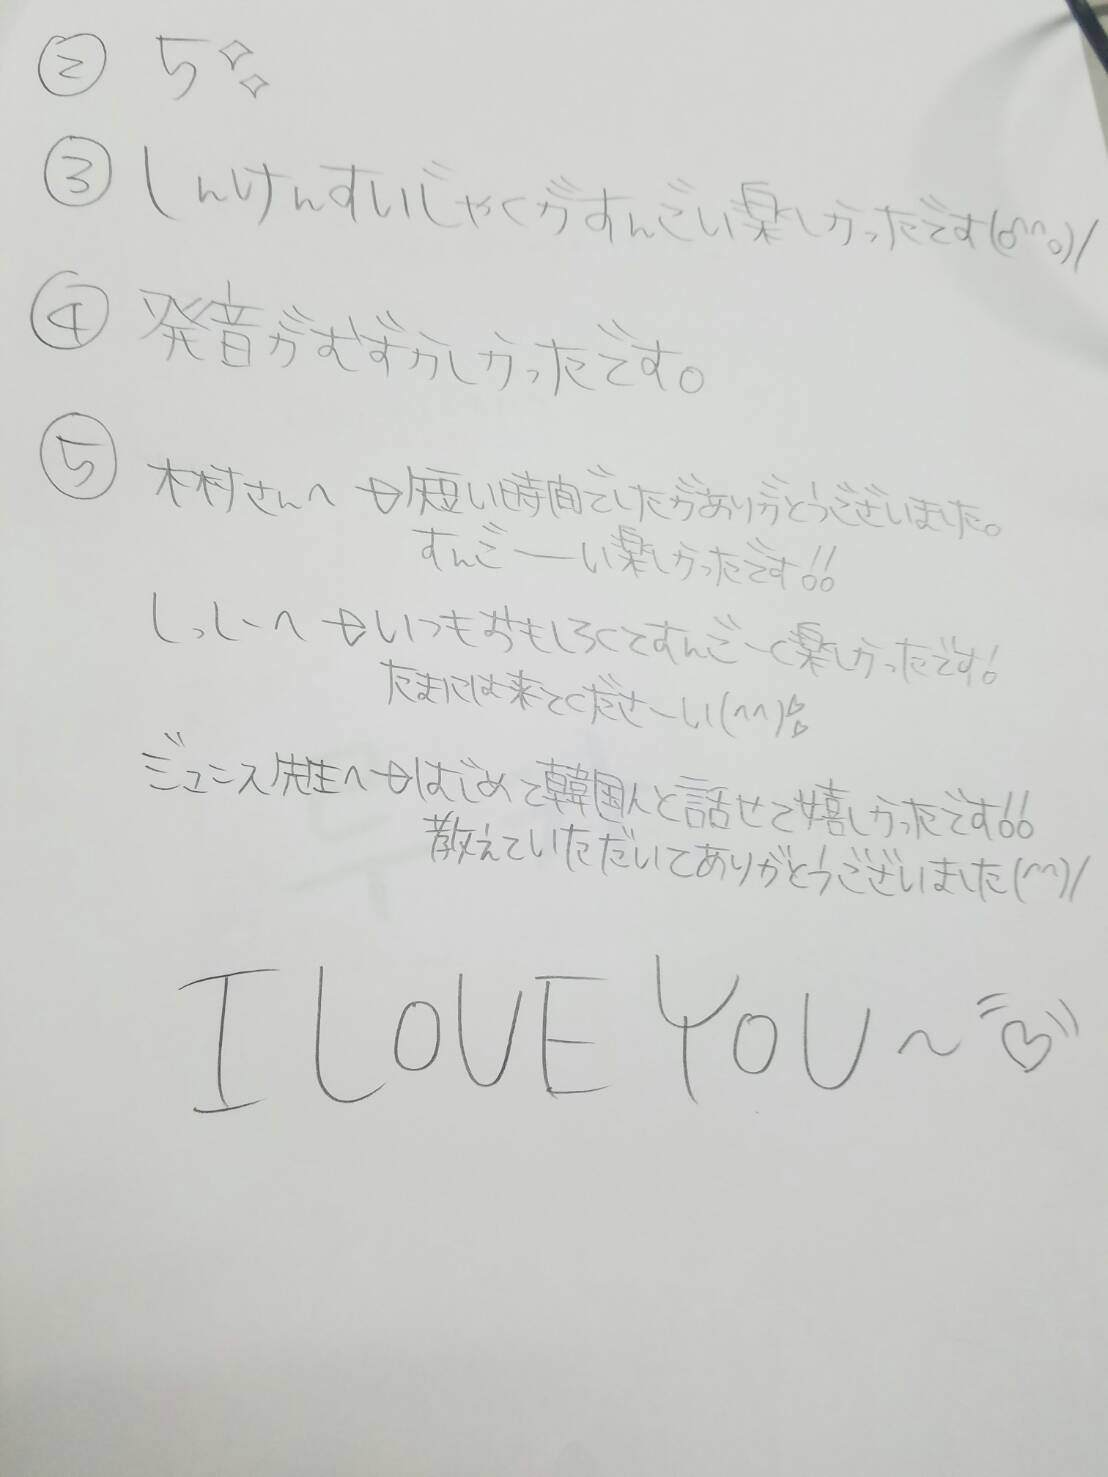 ② 5
③ しんけんすいじゃくがすんごい楽しかったです(o^^o)/
④ 発音がむずかしかったです。
⑤ 木村さんへ → 短い時間でしたがありがとうございました。
すんごーい楽しかったです!!
しっしーへ → いつもおもしろくてすんごーく楽しかったです!
たまには来てくださーい(^^)
ジュンス先生へ → はじめて韓国人と話せて嬉しかったです!!
教えていただいてありがとうございました(^^)/
I LOVE YOU~♡